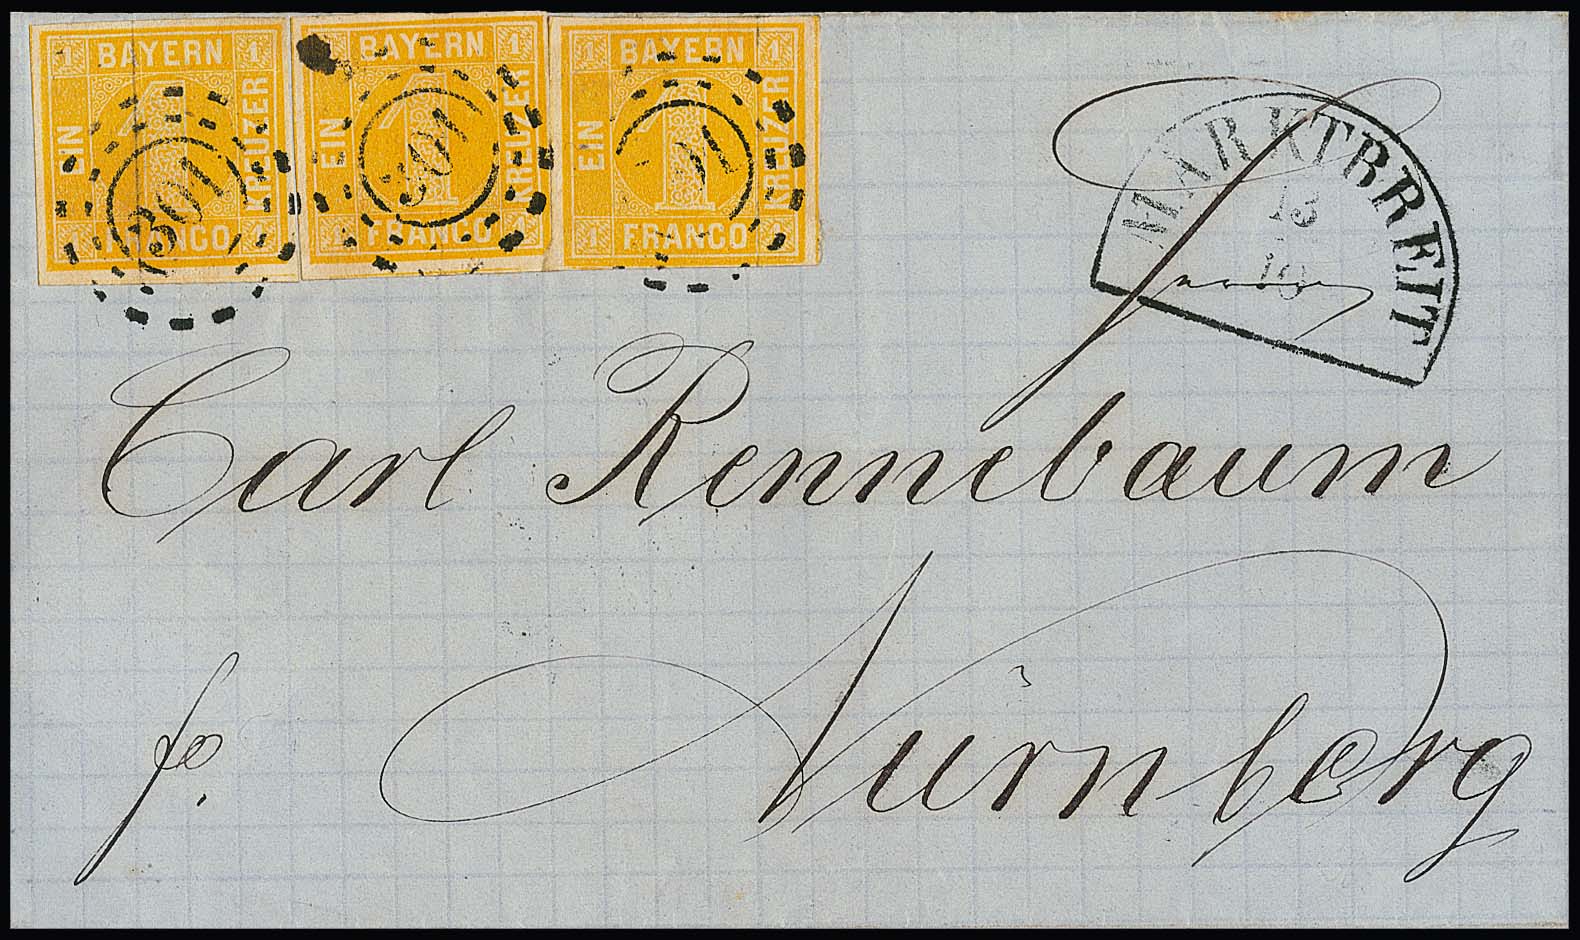 1 BAYERN 1
EIN 1 KREUZER
1 FRANCO 1
301
1 BAYERN 1
EIN 1 KREUZER
1 FRANCO 1
301
1 BAYERN 1
EIN 1 KREUZER
1 FRANCO 1
301
MARKTBREIT
13
10
Carl Rennebaum
fo.
Nürnberg